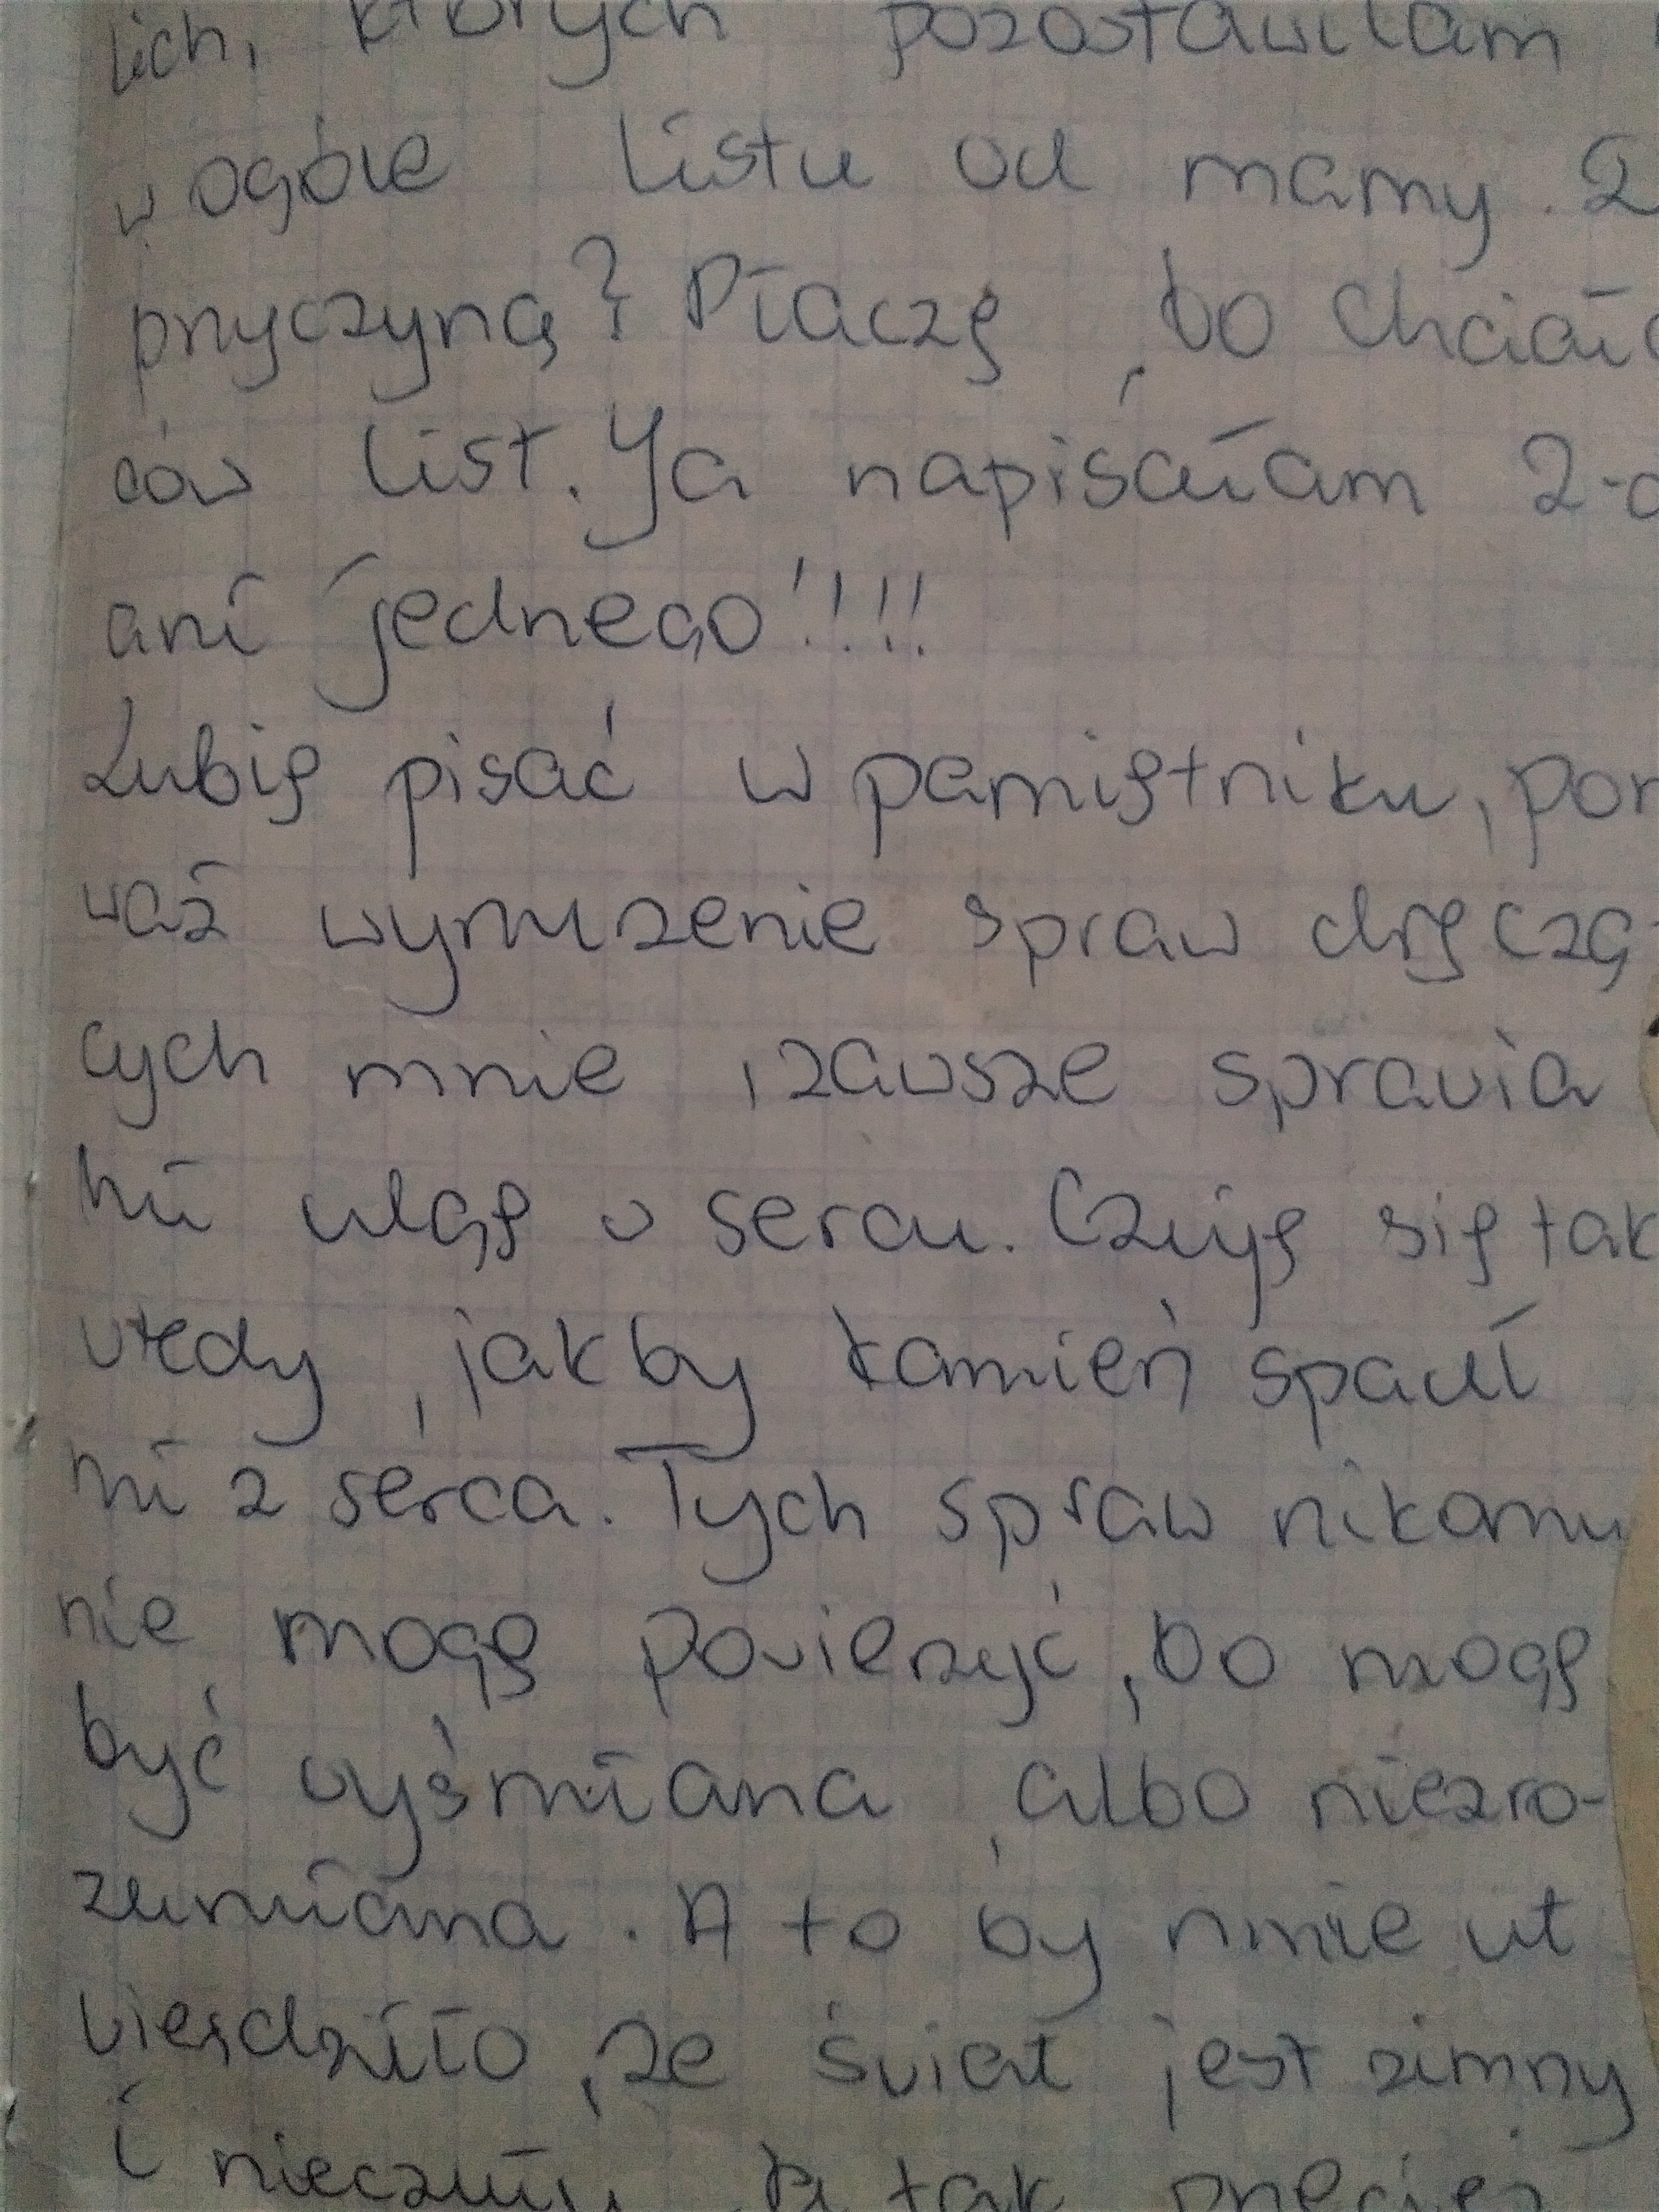 lich, których pozostawiłam
w ogóle listu od mamy. Z
przyczyną? Płaczę, bo chciała
ców list. Ja napisałam 2-
ani jednego!!!!
Lubię pisać w pamiętniku, pon
waż wynurzenie spraw dręczą-
cych mnie, zawsze sprawia
mi ulgę w sercu. Czuję się tak
wtedy, jakby kamień spadł
mi z serca. Tych spraw nikomu
nie mogę powierzyć, bo mogę
być wyśmiana, albo niezro-
zumiana. A to by mnie ut
wierdziło, że świat jest zimny
i nieczuły